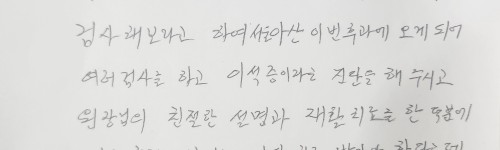 검사 해보라고 하여 서울아산이빈후과에 오게 되어
여러 검사를 하고 이석증이라는 진단을 해 주시고
원장님의 친절한 설명과 재활치료를 한 덕분에